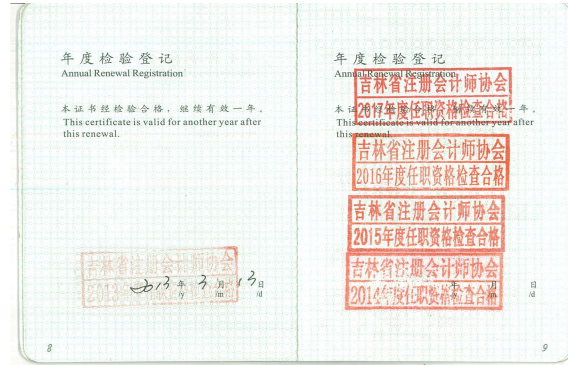 年度检验登记
Annual Renewal Registration
本证书经检验合格，继续有效一年。
This certificate is valid for another year after
this renewal.
吉林省注册会计师协会
2013年度任职资格检查合格
2013年 3月 13日
/y /m /d
8
年度检验登记
Annual Renewal Registration
吉林省注册会计师协会
2017年度任职资格检查合格
本证书经检验合格，继续有效一年。
This certificate is valid for another year after
this renewal.
吉林省注册会计师协会
2016年度任职资格检查合格
吉林省注册会计师协会
2015年度任职资格检查合格
吉林省注册会计师协会
2014年度任职资格检查合格
年 月 日
/y /m /d
9